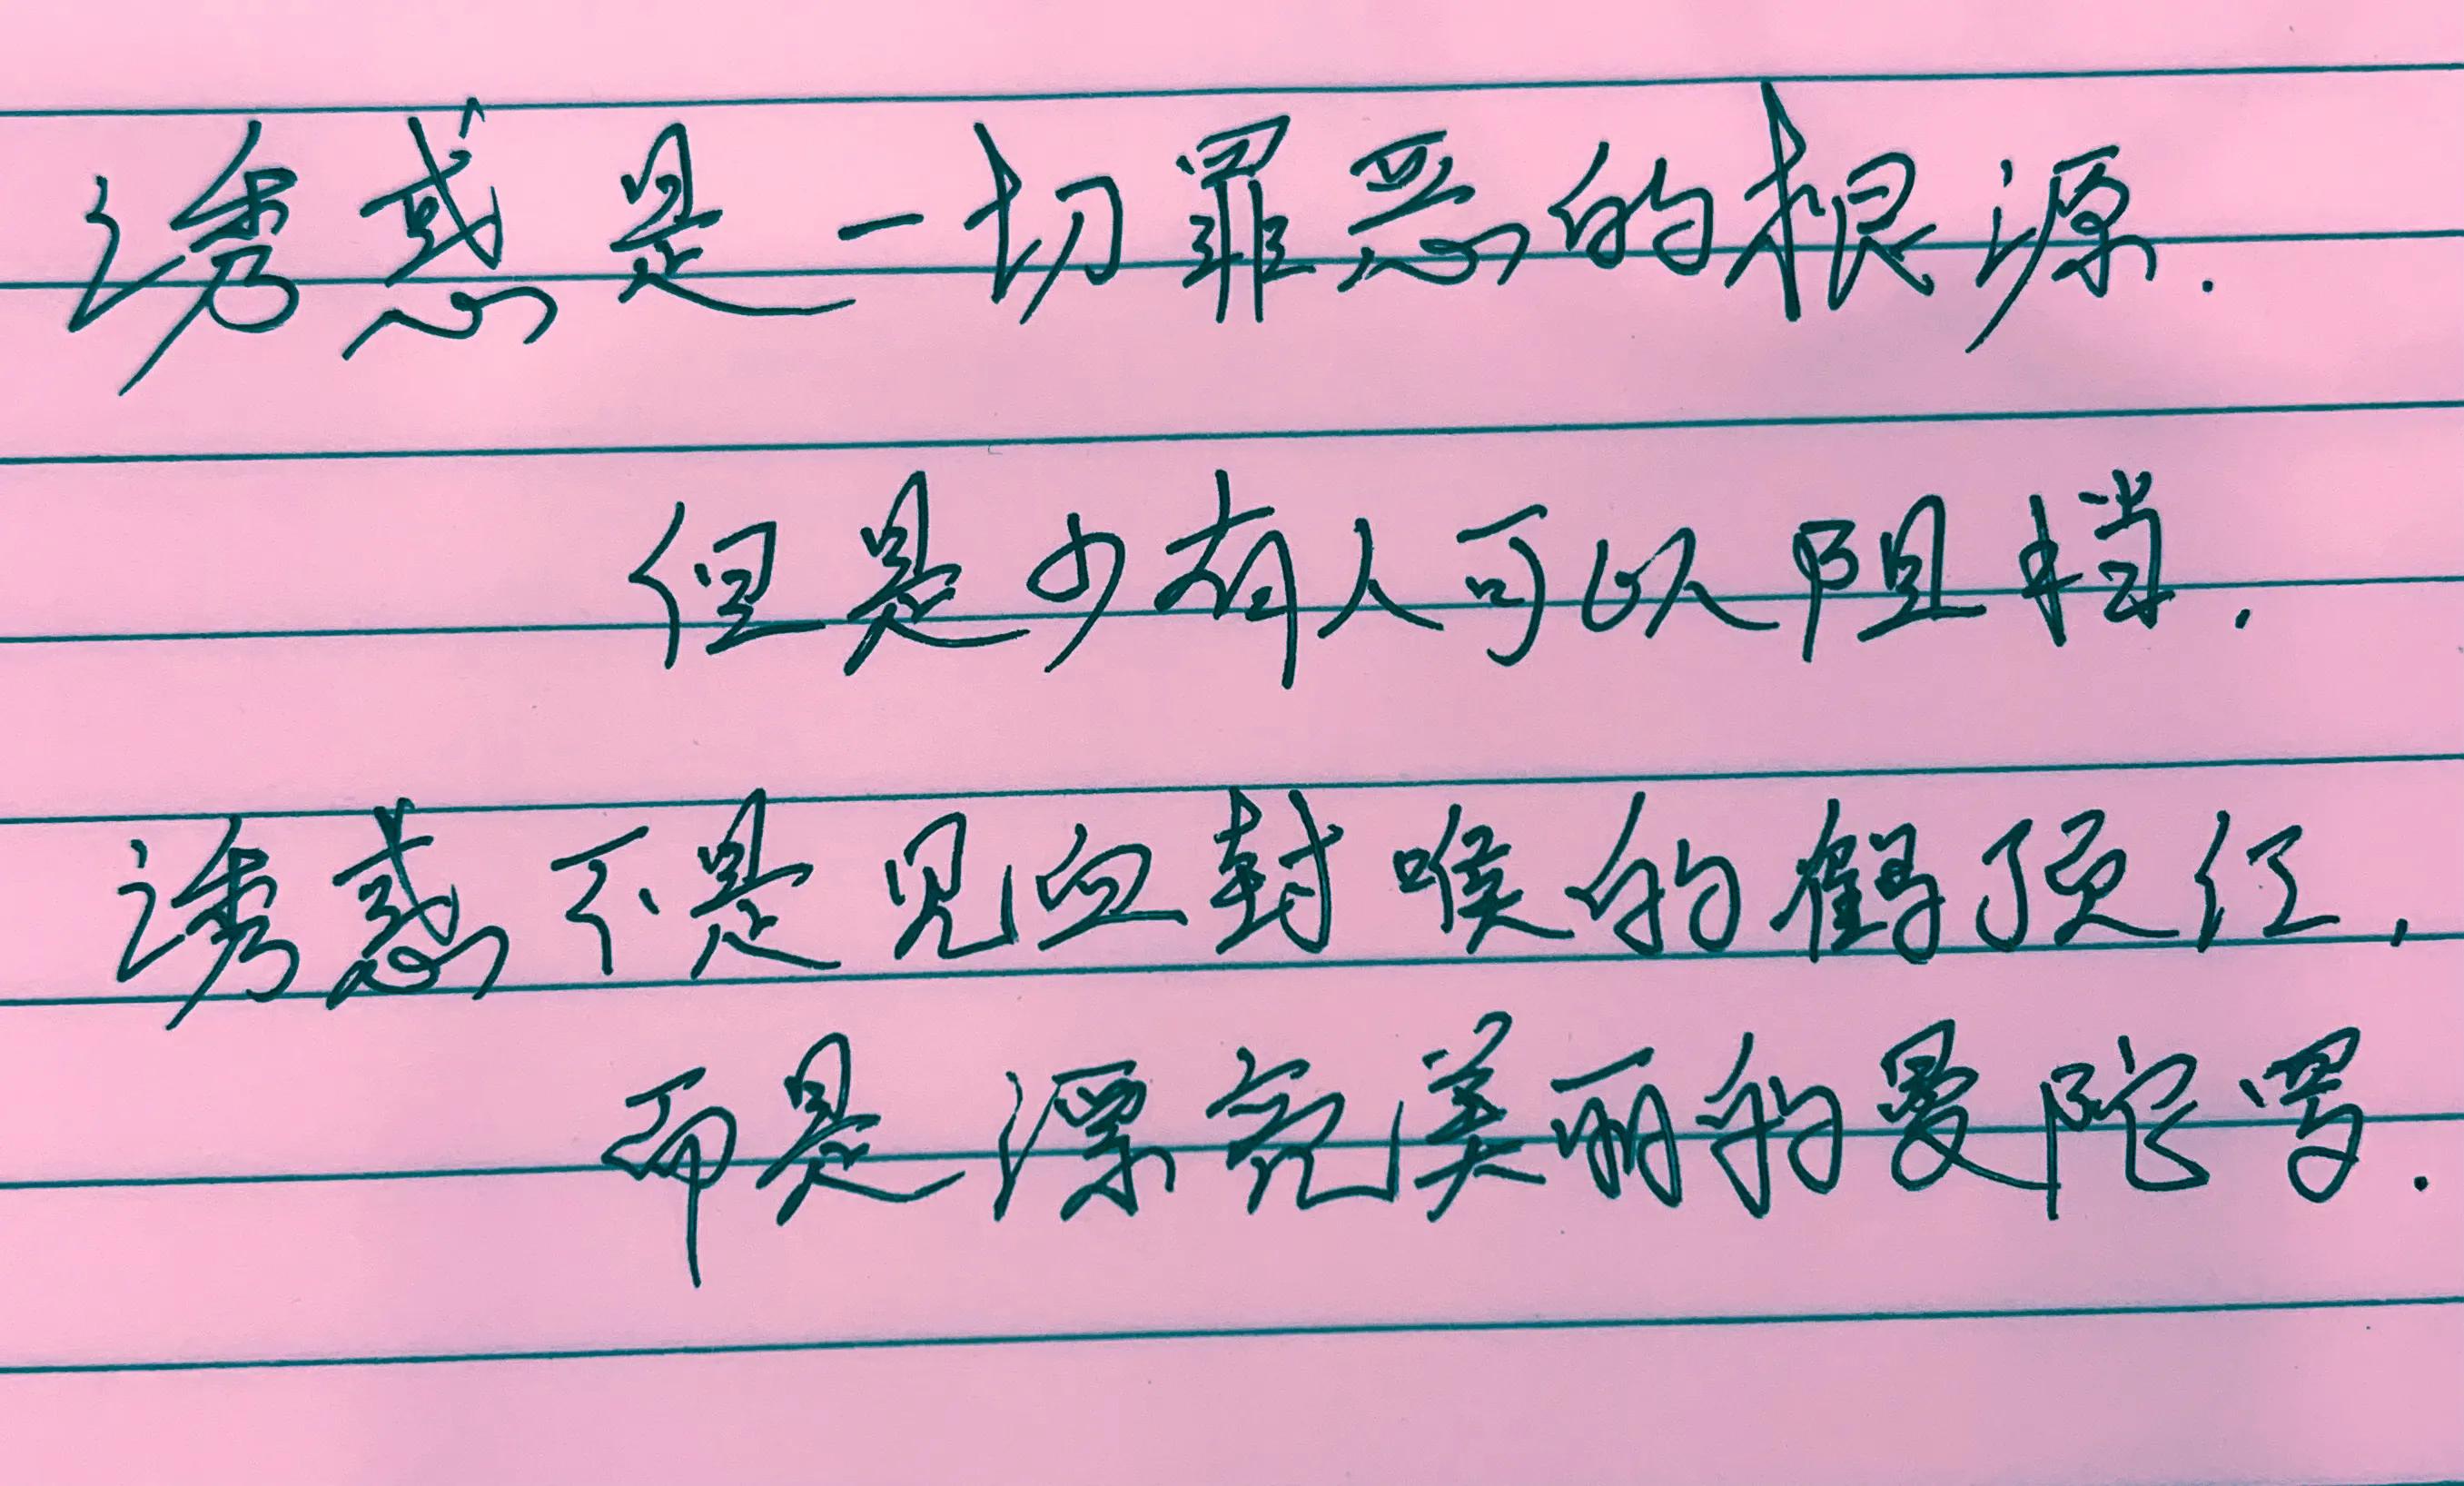 诱惑是一切罪恶的根源.
但是少有人可以阻挡.
诱惑不是见血封喉的鹤顶红,
而是漂亮美丽的曼陀罗.